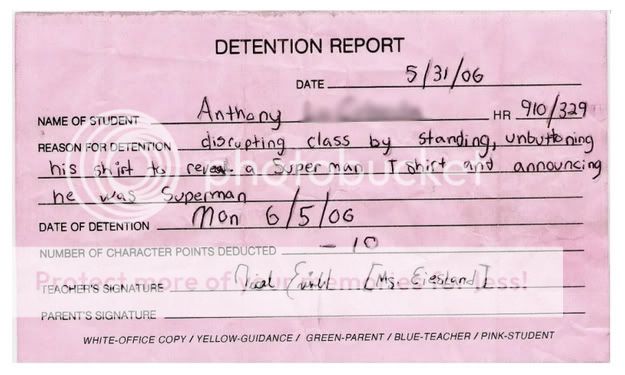 DETENTION REPORT
DATE 5/31/06
NAME OF STUDENT Anthony HR 910/329
REASON FOR DETENTION disrupting class by standing, unbuttoning
his shirt to reveal a Superman T shirt and announcing
he was Superman
DATE OF DETENTION Mon 6/5/06
NUMBER OF CHARACTER POINTS DEDUCTED - 10
Protect more of your memories for less!
TEACHER'S SIGNATURE [Ms. Eiesland]
PARENT'S SIGNATURE
WHITE-OFFICE COPY / YELLOW-GUIDANCE / GREEN-PARENT / BLUE-TEACHER / PINK-STUDENT
photobucket